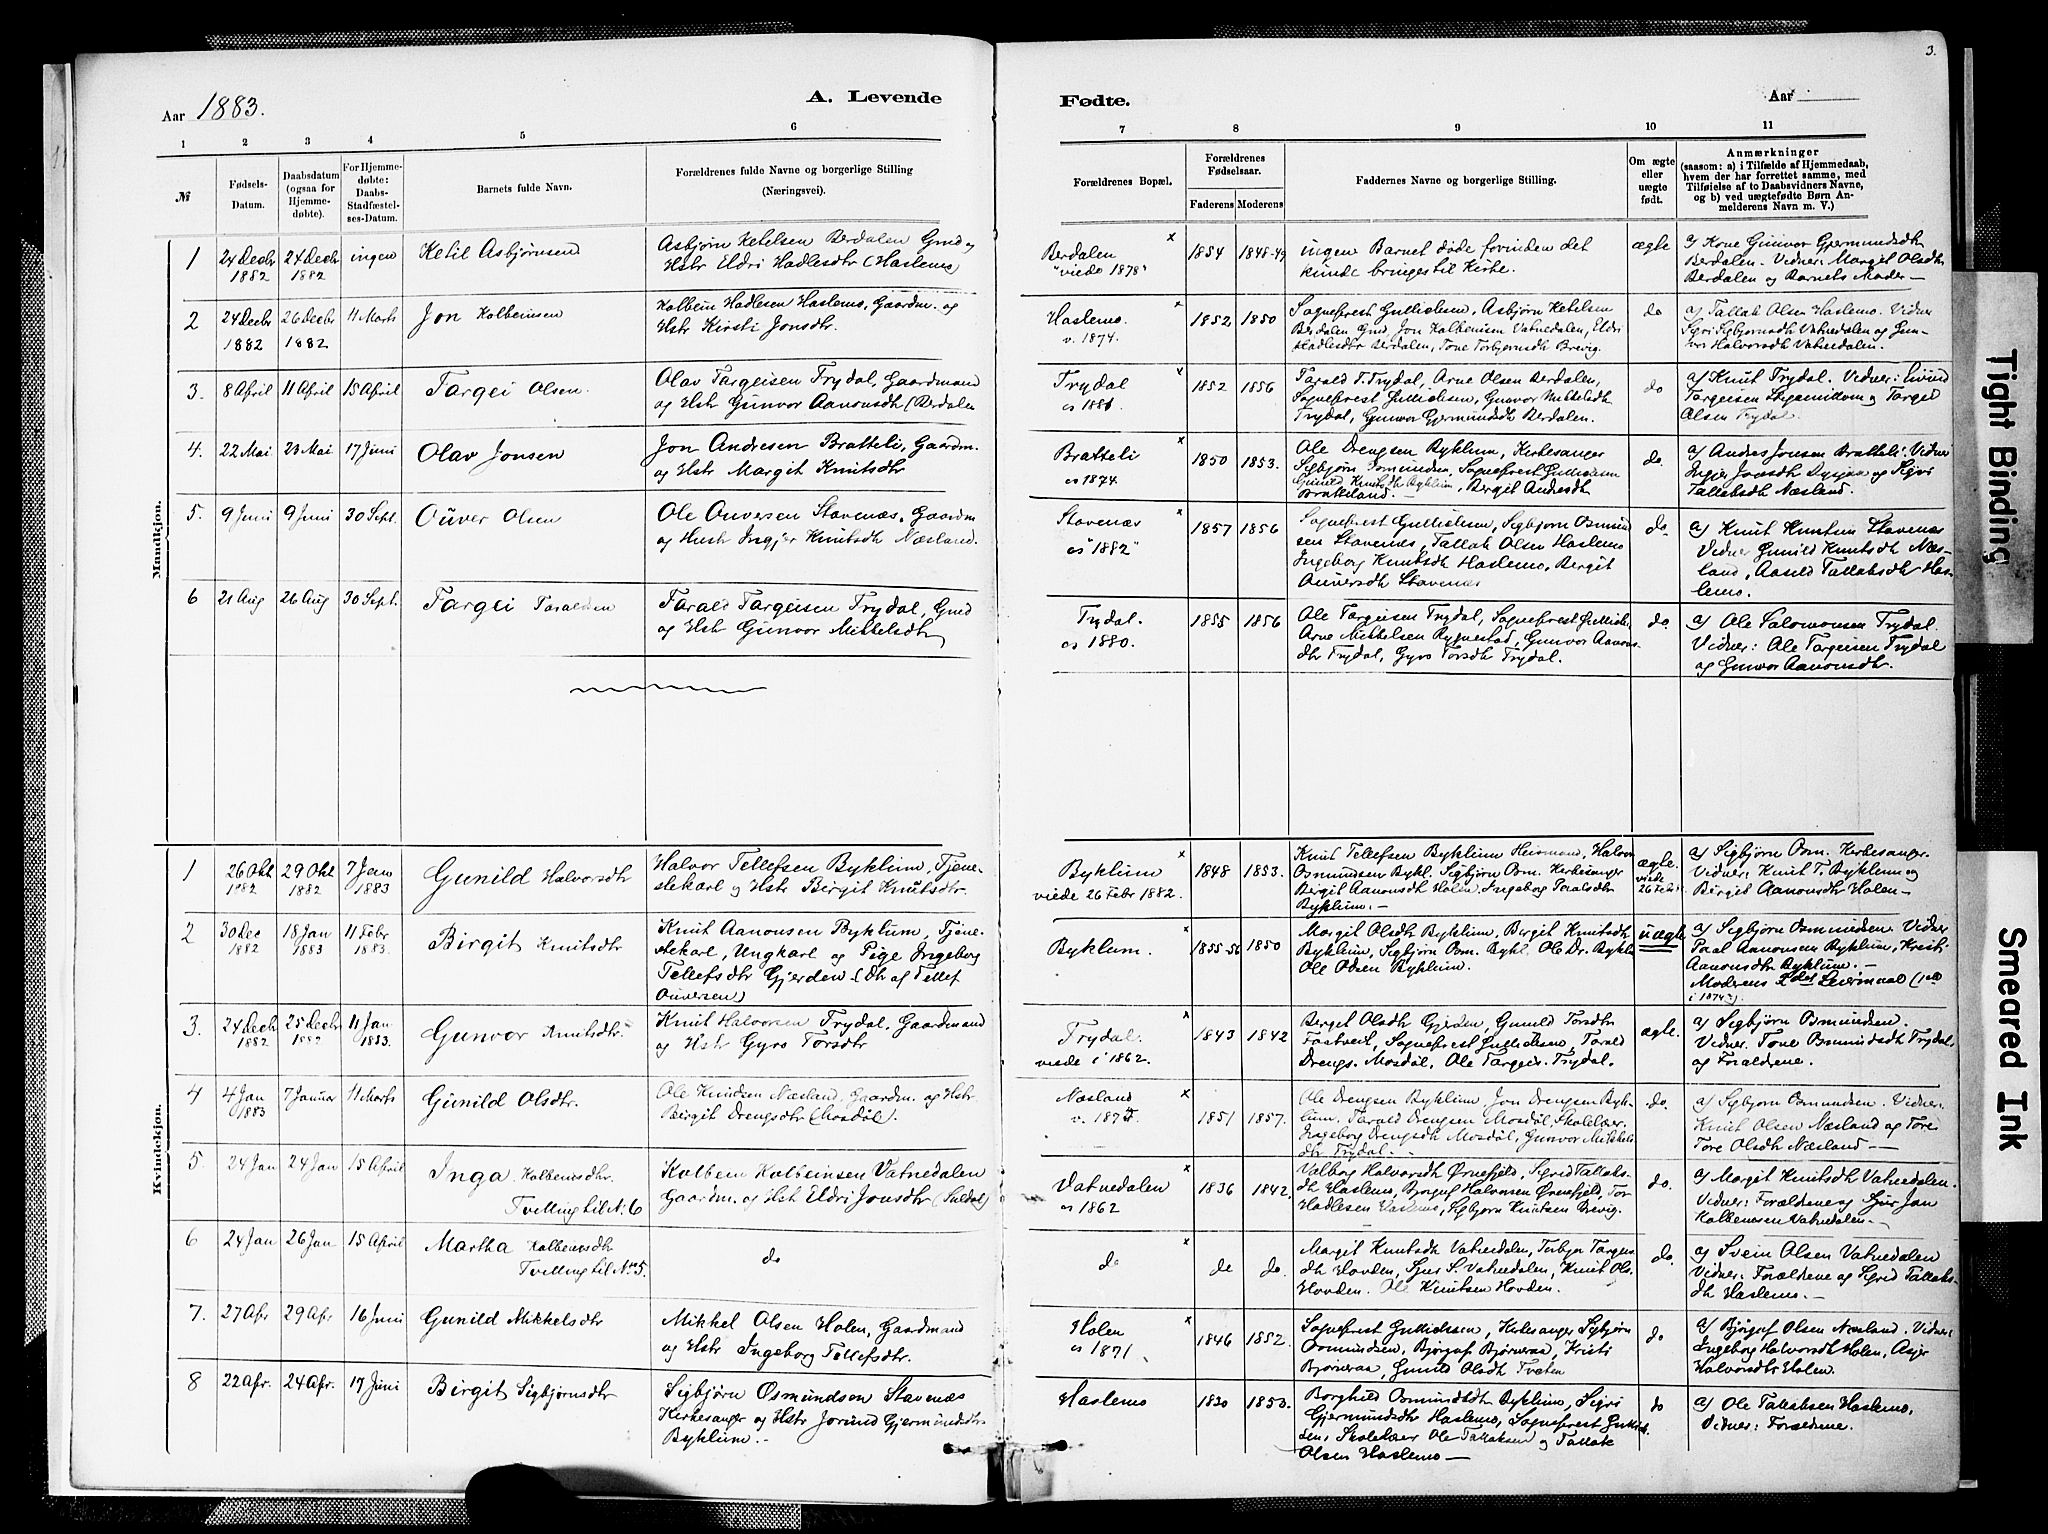 3.
Aar 1883.
A. Levende
Fødte.
Aar
1 2 3 4 5 6 7 8 9 10 11
№
Fødsels-
Datum.
Daabsdatum
(ogsaa for
Hjemme-
døbte).
For Hjemme-
døbte:
Daabs-
Stadfæstel-
ses-Datum.
Barnets fulde Navn.
Forældrenes fulde Navne og borgerlige Stilling
(Næringsvei).
Forældrenes Bopæl.
Forældrenes
Fødselsaar.
Faderens Moderens
Faddernes Navne og borgerlige Stilling.
Om ægte
eller
uægte
født.
Anmærkninger
(saasom: a) i Tilfælde af Hjemmedaab,
hvem der har forrettet samme, med
Tilføielse af to Daabsvidners Navne,
og b) ved uægtefødte Børn An-
melderens Navn m. V.)
Mandkjøn.
1
24 Decbr
1882
24 Decbr
1882
ingen
Ketil Asbjørnsen
Asbjørn Ketelsen Berdalen Gmd og
Hstr Eldri Hadlesdtr (Haslemo)
Berdalen
"viede 1878"
1854
1848-49
ingen Barnet døde forinden det
kunde bringes til Kirke.
ægte
a) Kone Gunvor Gjermundsdtr
Berdalen. Vidner: Margit Olsdtr
Berdalen og Barnets Moder —
2
24 Decbr
1882
26 Decbr
1882
11 Marts
Jon Kolbeinsen
Kolbein Hadlesen Haslemo, Gaardm. og
Hstr Kirsti Jonsdtr.
Haslemo.
v. 1874.
1852
1850
Sogneprest Gullichsen, Asbjørn Ketelsen
Berdalen Gmd, Jon Kolbeinsen Vatnedalen, Eldri
Hadlesdtr Berdalen, Tone Torbjørnsdtr Brevig.
do
a) Tallak Olsen Haslemo. Vidner
Sigri Sigbjørnsdtr Vatnedalen og Gun-
vor Halvorsdtr Vatnedalen.
3.
8 April
11 April
15 April
Targei Olsen.
Olav Targeisen Trydal, Gaardmand
og Hstr Gunvor Aanonsdtr (Berdalen
Trydal
es 1881
1852
1856
Tarald T. Trydal, Arne Olsen Berdalen,
Sogneprest Gullichsen, Gunvor Mikkelsdtr
Trydal, Gunvor Gjermundsdtr Berdalen.
do
a) Knut Trydal. Vidner: Eivind
Targeisen og Targei
Olsen Trydal
4.
22 Mai
23 Mai
17 Juni
Olav Jonsen
Jon Andresen Bratteli, Gaardm.
og Hstr Margit Knutsdtr
Bratteli
es 1874
1850
1853.
Ole Drengsen Byklum, Kirkesanger
Sigbjørn Osmundsen, Sogneprest Gullichsen
Gunild Knutsdtr Byklum, Bergit Andresdtr
Bratteland. —
do.
a) Andres Jonsen Bratteli. Vidner
Ingjer Jonsdtr og Sigri
Tallebsdtr Næsland.
5.
9 Juni
9 Juni
30 Sept.
Ouver Olsen
Ole Ouversen Stavenæs, Gaardm
og Hustr Ingjer Knutsdtr Næsland.
Stavenæs
es "1882"
1857
1856
Sogneprest Gullichsen, Sigbjørn Osmund
sen Stavenæs, Tallak Olsen Haslemo
Ingeborg Knutsdtr Haslemo, Bergit
Ouversdtr Stavenæs
do.
a) Knut Knutsen Stavenæs
Vidner Gunild Knutsdtr Næs-
land, Aasild Tallaksdtr Has-
lemo.
6
21 Aug
26 Aug
30 Sept.
Targei Taraldsen
Tarald Targeisen Trydal, Gmd
og Hstr Gunvor Mikkelsdtr
Trydal.
es 1880.
1855
1856
Ole Targeisen Trydal, Sogneprest Gullichs.
Arne Mikkelsen Rygnestad, Gunvor Aanons-
dtr Trydal, Gyro Torsdtr Trydal.
do.
a) Ole Salomonsen Trydal
Vidner: Ole Targeisen Trydal
og Gunvor Aanonsdtr.
Kvindekjøn.
1
26 Okt
1882
29 Okt
1882
7 Jan
1883
Gunild Halvorsdtr
Halvor Tellefsen Byklum, Tjene-
stekarl og Hstr Birgit Knutsdtr.
Byklum
viede 26 Febr 1882.
1848
1853.
Knut Tellefsen Byklum Heimand, Halvor
Osmundsen Bykl. Sigbjørn Osm. Kirkesanger
Birgit Aanonsdtr Holen, Ingeborg Toralsdtr
Byklum. —
ægte.
viede
26 Febr
a) Sigbjørn Osm. Kirkesanger.
Vidner: Knut T. Byklum og
Birgit Aanonsdtr Holen —
2
30 Dec
1882
18 Jan
1883
11 Febr
1883.
Birgit Knutsdtr
Knut Aanonsen Byklum, Tjene-
stekarl, Ungkarl og Pige Ingeborg
Tellefsdtr Gjerden (Dtr af Tellef
Ouversen)
Byklum.
1855-56
1850
Margit Olsdtr Byklum, Birgit Knutsdtr
Byklum, Sigbjørn Osm. Bykl. Ole Dr. Bykl.
Ole Olsen Byklum.
uægte
a) Sigbjørn Osmundsen. Vidner
Paal Aanonsen Byklum, Kristi
Aanonsdtr Byklum. —
Moderens 2det Leiermaal (1ste
i 1874).
3.
24 Decbr
1882
25 Decbr
1882
11 Jan
1883.
Gunvor Knutsdtr.
Knut Halvorsen Trydal, Gaardmand
og Hstr Gyro Torsdtr
Trydal.
viede i 1862.
1843
1842
Berget Olsdtr Gjerden, Gunild Torsdtr
Sogneprest Gullichsen, Tarald
Drengs. Mosdøl, Ole Targeis. Trydal.
ægte.
a) Sigbjørn Osmundsen.
Vidner: Tone Osmundsdtr Trydal
og Forældrene.
4
4 Jan
1883
7 Januar
11 Marts
Gunild Olsdtr.
Ole Knudsen Næsland, Gaardm. og Hstr
Birgit Drengsdtr (Mosdøl).
Næsland
v. 1877.
1851
1857.
Ole Drengsen Byklum, Jon Drengsen Byk-
lum. Tarald Drengsen Mosdøl, Skolelær.
Ingeborg Drengsdtr Mosdøl, Gunvor Mikkels
dtr Trydal. —
do.
a) Sigbjørn Osmundsen. Vidner:
Knut Olsen Næsland og Tore
Tore Olsdtr Næsland —
5.
24 Jan
24 Jan
15 April
Inga Kolbeinsdtr
Tvilling til № 6
Kolbein Kolbeinsen Vatnedalen
Gaardm. og Hst Eldri Jonsdtr (Suldal)
Vatnedalen
es 1862
1836
1842.
Valborg Halvorsdtr Ørnefjeld, Sigrid Tallaks-
dtr Haslemo, Bjørguf Halvorsen Ørnefjeld, Tor
Hadlesen Haslemo, Sigbjørn Knutsen Brevig.
do.
a) Margit Knutsdtr Vatnedalen.
Vidner: Forældrene og Sjur Jan
Kolbeinsen Vatnedalen. —
6
24 Jan
26 Jan
15 April
Martha Kolbeinsdtr
Tvilling til № 5.
do
do
do
do.
Margit Knutsdtr Vatnedalen, Torbjør Targeis
dtr Hovden, Sjur S. Vatnedalen, Knut Ols.
Hovden. Ole Knutsen Hovden.
do.
a) Svein Olsen Vatnedalen
Vidner: Forældrene og Sigrid Tallaks-
dtr Haslemo. —
7.
27 Apr
29 Apr
16 Juni
Gunild Mikkelsdtr
Mikkel Olsen Holen, Gaardmand
og Hstr Ingeborg Tellefsdtr.
Holen
es 1871
1846
1852.
Sogneprest Gullichsen, Kirkesanger Sigbjørn
Osmundsen, Bjørguf Bjørneraa, Kristi
Bjørneraa, Gunild Olsdtr Tveten
do
a) Bjørguf Olsen Næsland. Vidner:
Ingeborg Halvorsdtr Holen, Asjer
Halvorsdtr Holen.
8
22 Apr.
24 Apr.
17 Juni
Birgit Sigbjørnsdtr
Sigbjørn Osmundsen Stavenæs
Kirkesanger og Hstr Jorund Gjermundsdtr
Byklum. —
Haslemo
1830
1853.
Borghild Osmundsdtr Byklum, Sigri
Gjermundsdtr Haslemo, Sogneprest Gullich
sen, Skolelærer Ole Tallaksen og Tallak
Olsen Haslemo —
do
a) Ole Tallaksen Haslemo,
Vidner: Forældrene.
Tight Binding
Smeared Ink